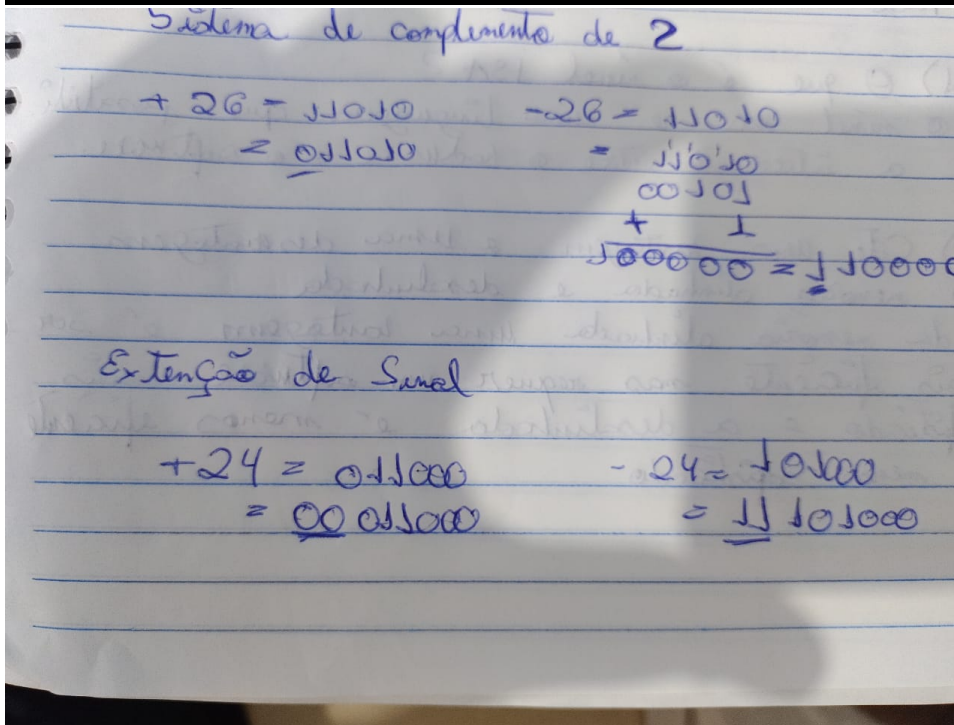 Sistema de complemento de 2
+ 26 = 11010 -26 = 11010
= 011010 = 11010
00101
+ 1
100000 = 1 10000
Extenção de Sinal
+24 = 011000 - 24 = 101000
= 00 011000 = 11 101000